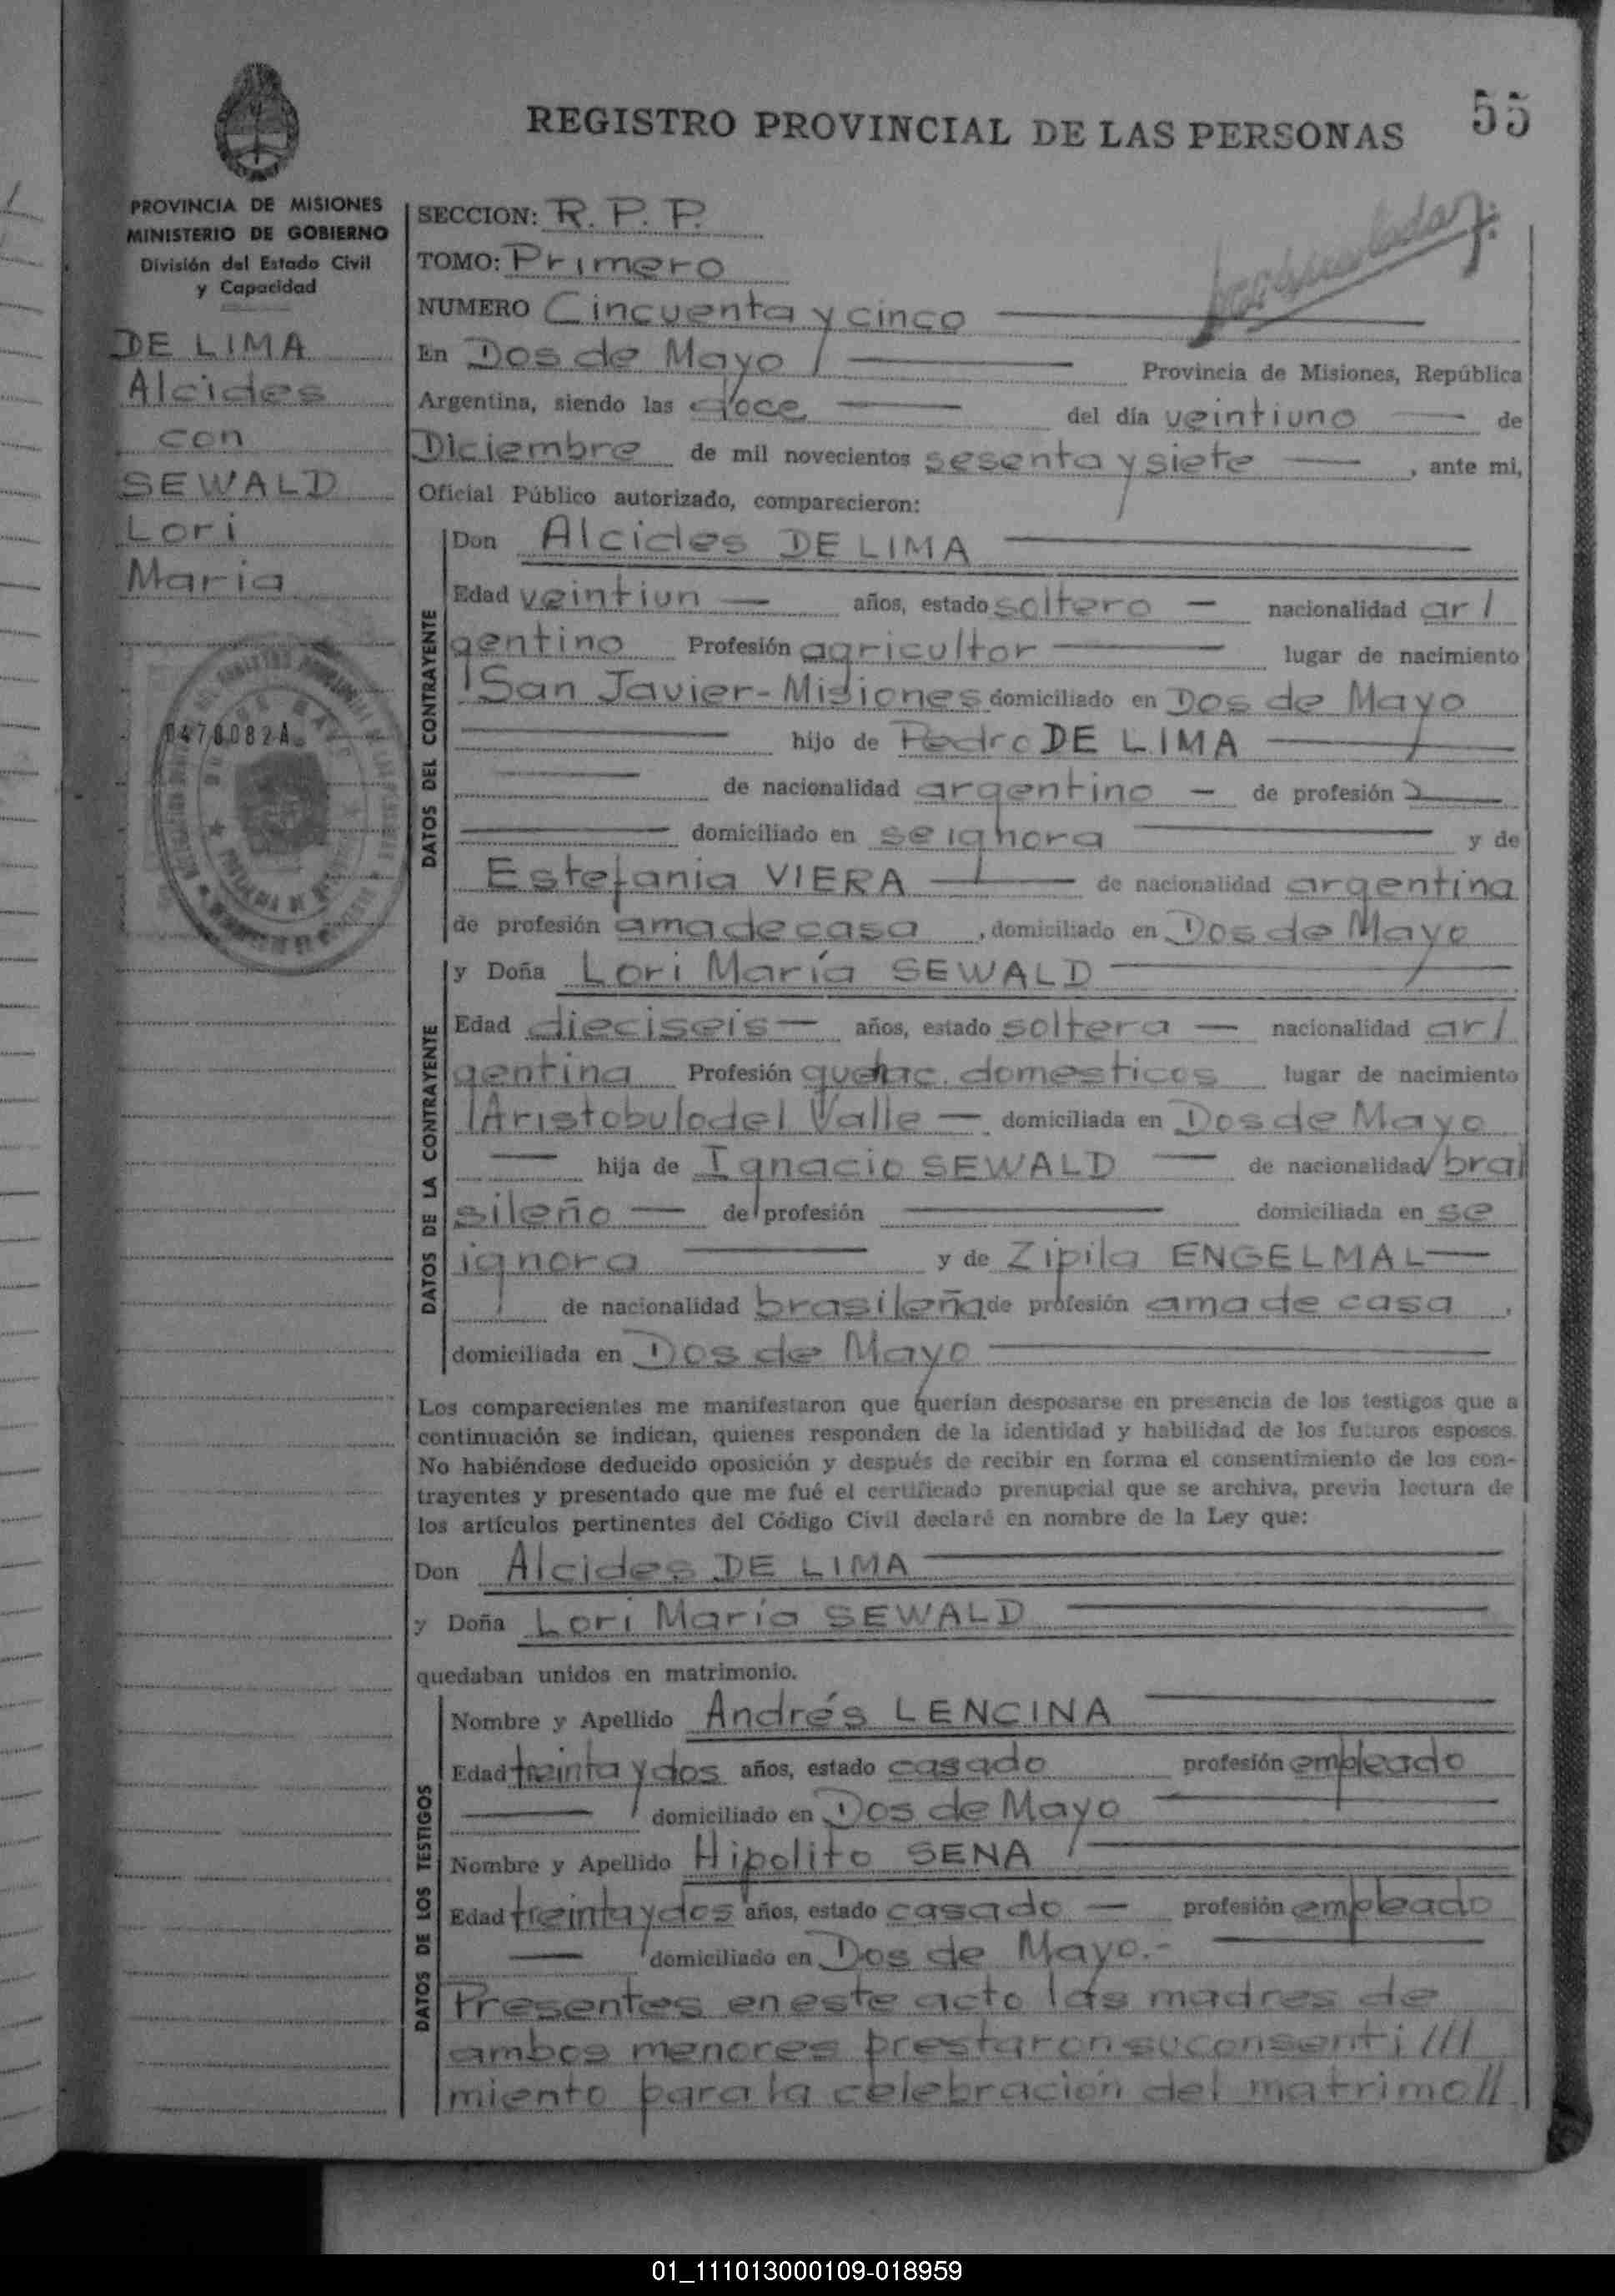 REGISTRO PROVINCIAL DE LAS PERSONAS
55
PROVINCIA DE MISIONES
MINISTERIO DE GOBIERNO
División del Estado Civil
y Capacidad
DE LIMA
Alcides
con
SEWALD
Lori
Maria
0478082A
SECCION: R. P. P.
TOMO: Primero
NUMERO Cincuenta y cinco
En Dos de Mayo Provincia de Misiones, República
Argentina, siendo las doce del día veintiuno de
Diciembre de mil novecientos sesenta y siete, ante mi,
Oficial Público autorizado, comparecieron:
DATOS DEL CONTRAYENTE
Don Alcides DE LIMA
Edad veintiun años, estado soltero nacionalidad ar/
gentino Profesión agricultor lugar de nacimiento
San Javier - Misiones domiciliado en Dos de Mayo
hijo de Pedro DE LIMA
de nacionalidad argentino de profesión
domiciliado en se ignora y de
Estefania VIERA de nacionalidad argentina
de profesión ama de casa, domiciliado en Dos de Mayo
DATOS DE LA CONTRAYENTE
y Doña Lori María SEWALD
Edad dieciseis años, estado soltera nacionalidad ar/
gentina Profesión quehac. domesticos lugar de nacimiento
Aristobulo del Valle domiciliada en Dos de Mayo
hija de Ignacio SEWALD de nacionalidad bra/
sileño de profesión domiciliada en se
ignora y de Zipila ENGELMAL
de nacionalidad brasileña de profesión ama de casa,
domiciliada en Dos de Mayo
Los comparecientes me manifestaron que querían desposarse en presencia de los testigos que a
continuación se indican, quienes responden de la identidad y habilidad de los futuros esposos.
No habiéndose deducido oposición y después de recibir en forma el consentimiento de los con-
trayentes y presentado que me fué el certificado prenupcial que se archiva, previa lectura de
los artículos pertinentes del Código Civil declaré en nombre de la Ley que:
Don Alcides DE LIMA
y Doña Lori María SEWALD
quedaban unidos en matrimonio.
DATOS DE LOS TESTIGOS
Nombre y Apellido Andrés LENCINA
Edad treinta y dos años, estado casado profesión empleado
domiciliado en Dos de Mayo
Nombre y Apellido Hipolito SENA
Edad treinta y dos años, estado casado profesión empleado
domiciliado en Dos de Mayo.-
Presentes en este acto las madres de
ambos menores prestaron su consenti///
miento para la celebración del matrimo//
01_111013000109-018959